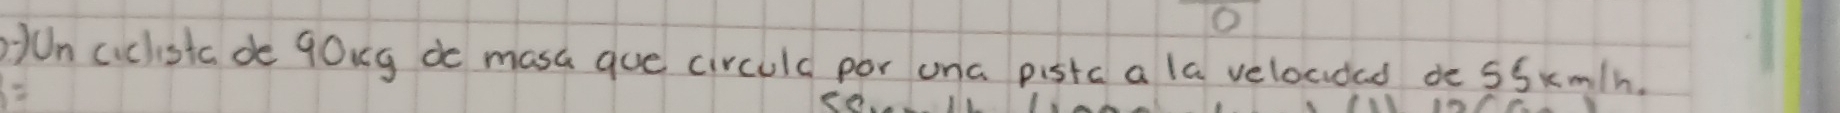 0
:-)Un ciclista de 90kg de masa que circula por una pista a la velocidad de 55km/h.